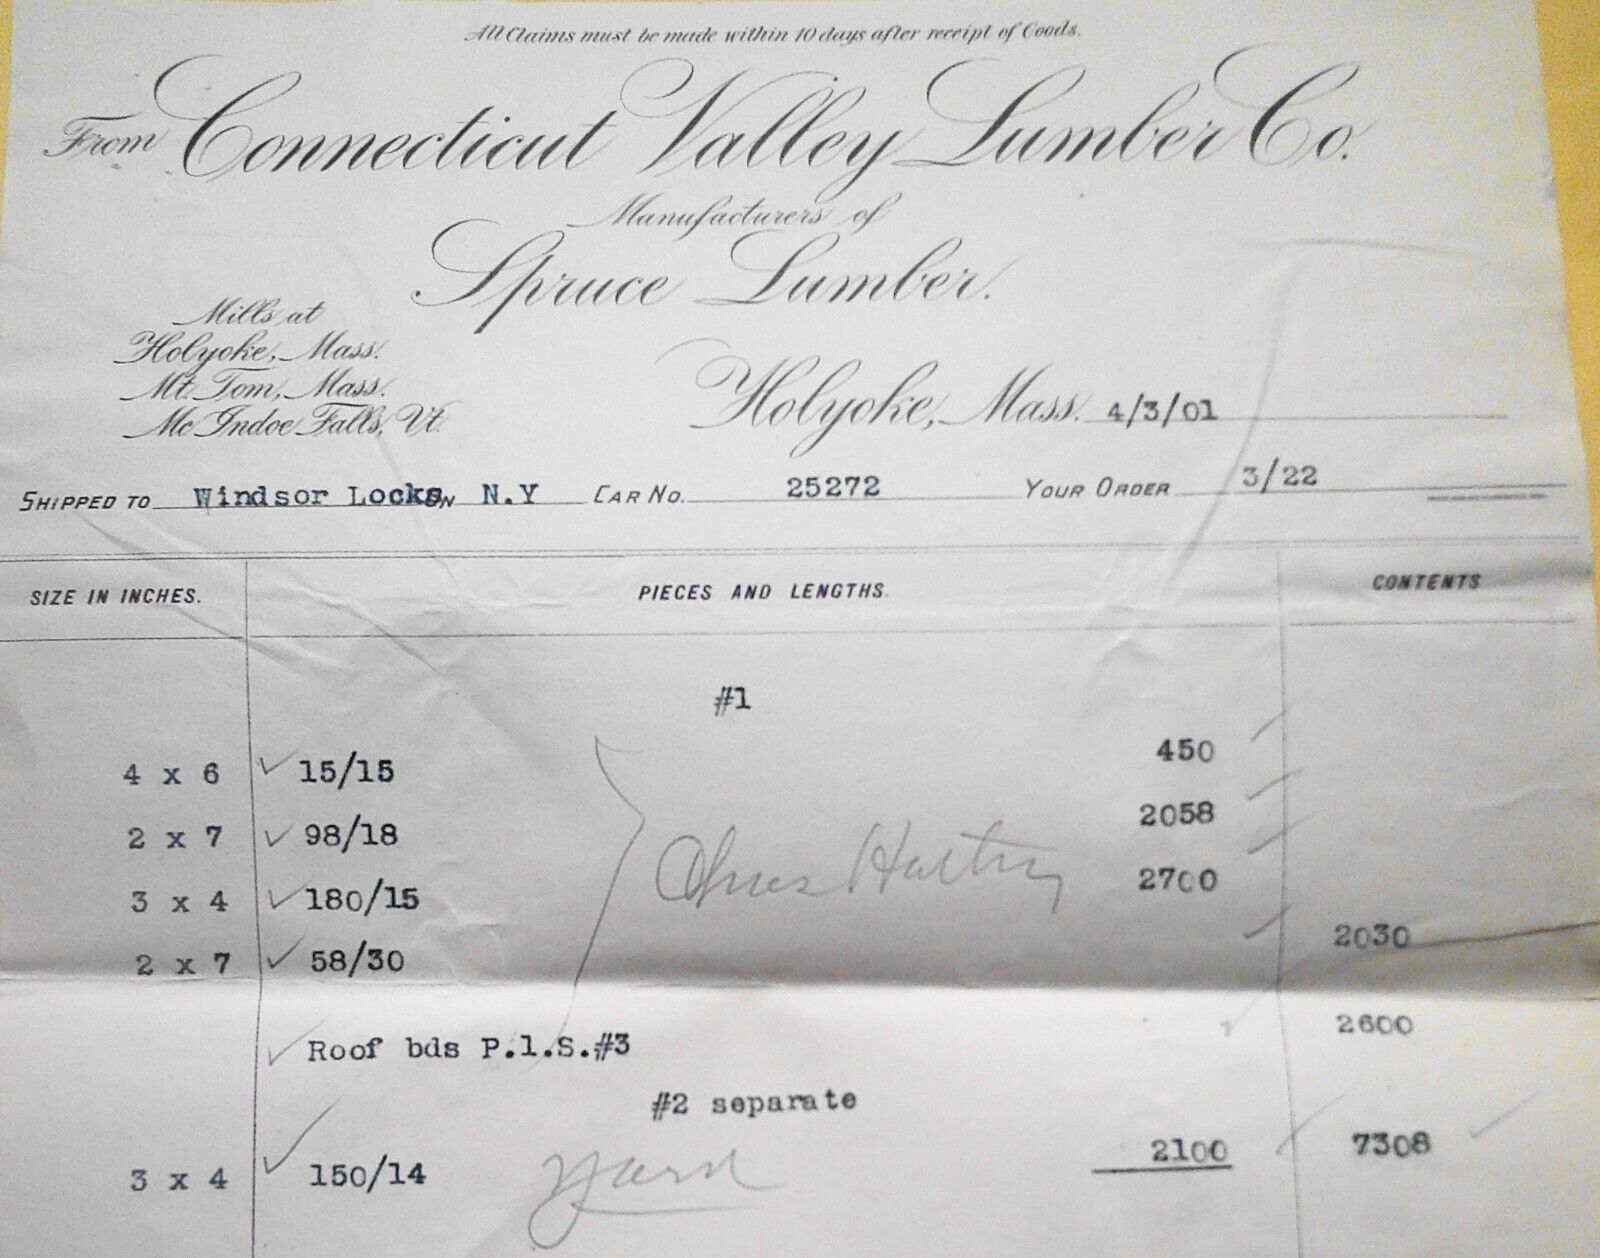 All Claims must be made within 10 days after receipt of Goods.
From Connecticut Valley Lumber Co.
Manufacturers of
Spruce Lumber.
Mills at
Holyoke, Mass.
Mt. Tom, Mass.
Mc Indoe Falls, Vt.
Holyoke, Mass. 4/3/01
SHIPPED TO Windsor Locks ON N.Y CAR NO. 25272 YOUR ORDER 3/22
SIZE IN INCHES. PIECES AND LENGTHS. CONTENTS
#1
4 x 6 ✓ 15/15 450 ✓
2 x 7 ✓ 98/18 2058 ✓
3 x 4 ✓ 180/15 2700 ✓
2 x 7 ✓ 58/30 ✓ 2030
✓ Roof bds P.l.S.#3 ✓ 2600
#2 separate
3 x 4 ✓ 150/14 Yard 2100 ✓ 7308 ✓